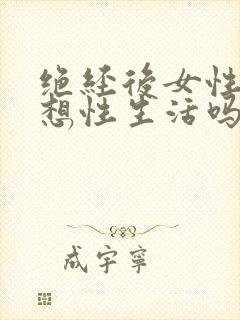 绝経後女性
想性生活吗
成宇寧